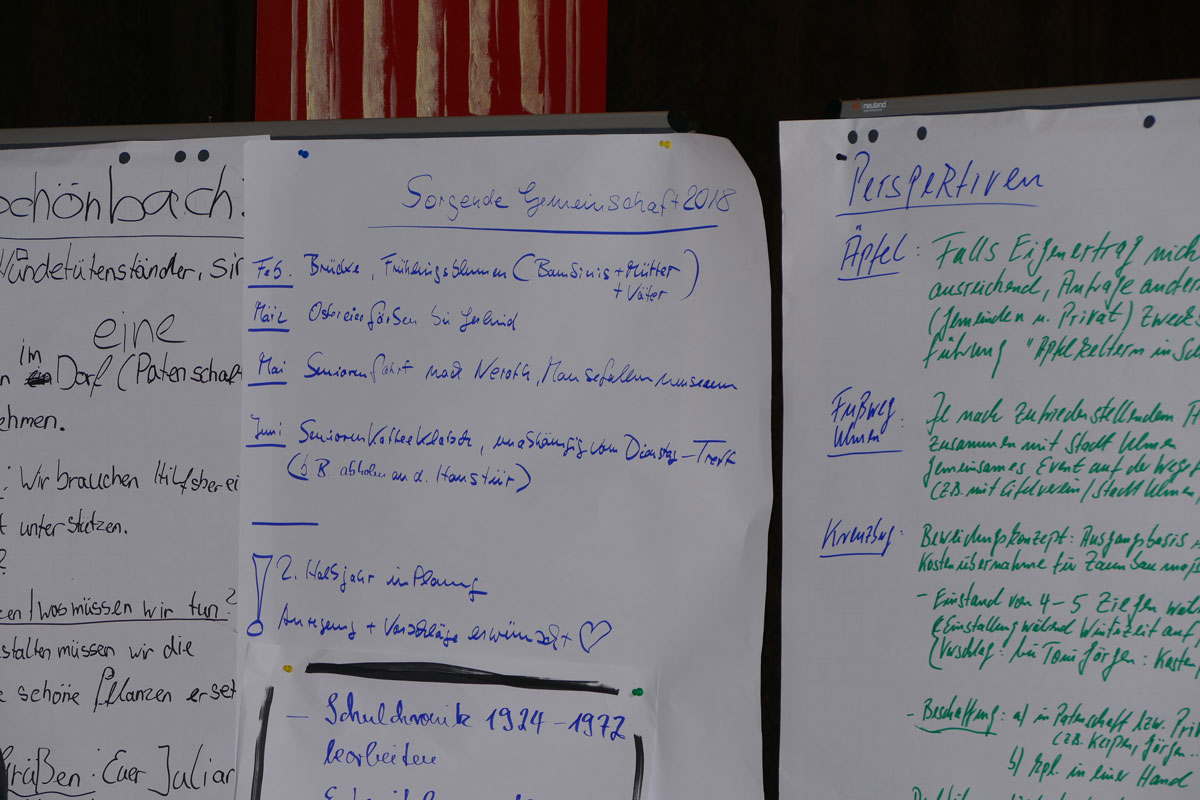 chönbach:
Hündetütenständer, sir
eine
im
Dorf (Patenschaf
ehmen.
: Wir brauchen Hilfsberei
t unterstützen.
?
en / was müssen wir tun?
stalten müssen wir die
e schöne Pflanzen erset
Grüßen: Euer Juliar
Sorgende Gemeinschaft 2018
Feb. Brücke, Frühlingsblumen (Bambinis + Mütter
+ Väter)
März Ostereier färben bei Gerlind
Mai Seniorenfahrt nach Neroth, Mausefallenmuseum
Juni Seniorenkaffeeklatsch, unabhängig vom Dienstag-Treff
(z.B. abholen an d. Haustür)
2. Halbjahr in Planung
Anregung + Vorschläge erwünscht ♡
– Schulchronik 1924 – 1972
bearbeiten
neuland
Perspektiven
Äpfel: Falls Eigenertrag nich
ausreichend, Anfrage ander
(Gemeinden u. Privat) zwecks
führung "Äpfel keltern in Sch
Fußweg Ulmen: Je nach zufriedenstellendem
zusammen mit Stadt Ulmen
gemeinsames Event auf der Weges
(z.B. mit Eifelverein / Stadt Ulmen,
Kreuzbg: Beweidungskonzept: Ausgangsbasis
Kostenübernahme für Zaunbau
– Einstand von 4–5 Ziegen wäh
(Einstallung während Winterzeit auf
(Vorschlag: bei Toni Jörgen: Kosten,
– Beschaffung: a) in Patenschaft bzw. Pri
(z.B. Kerpen, Jörgen..
b) kpl. in einer Hand